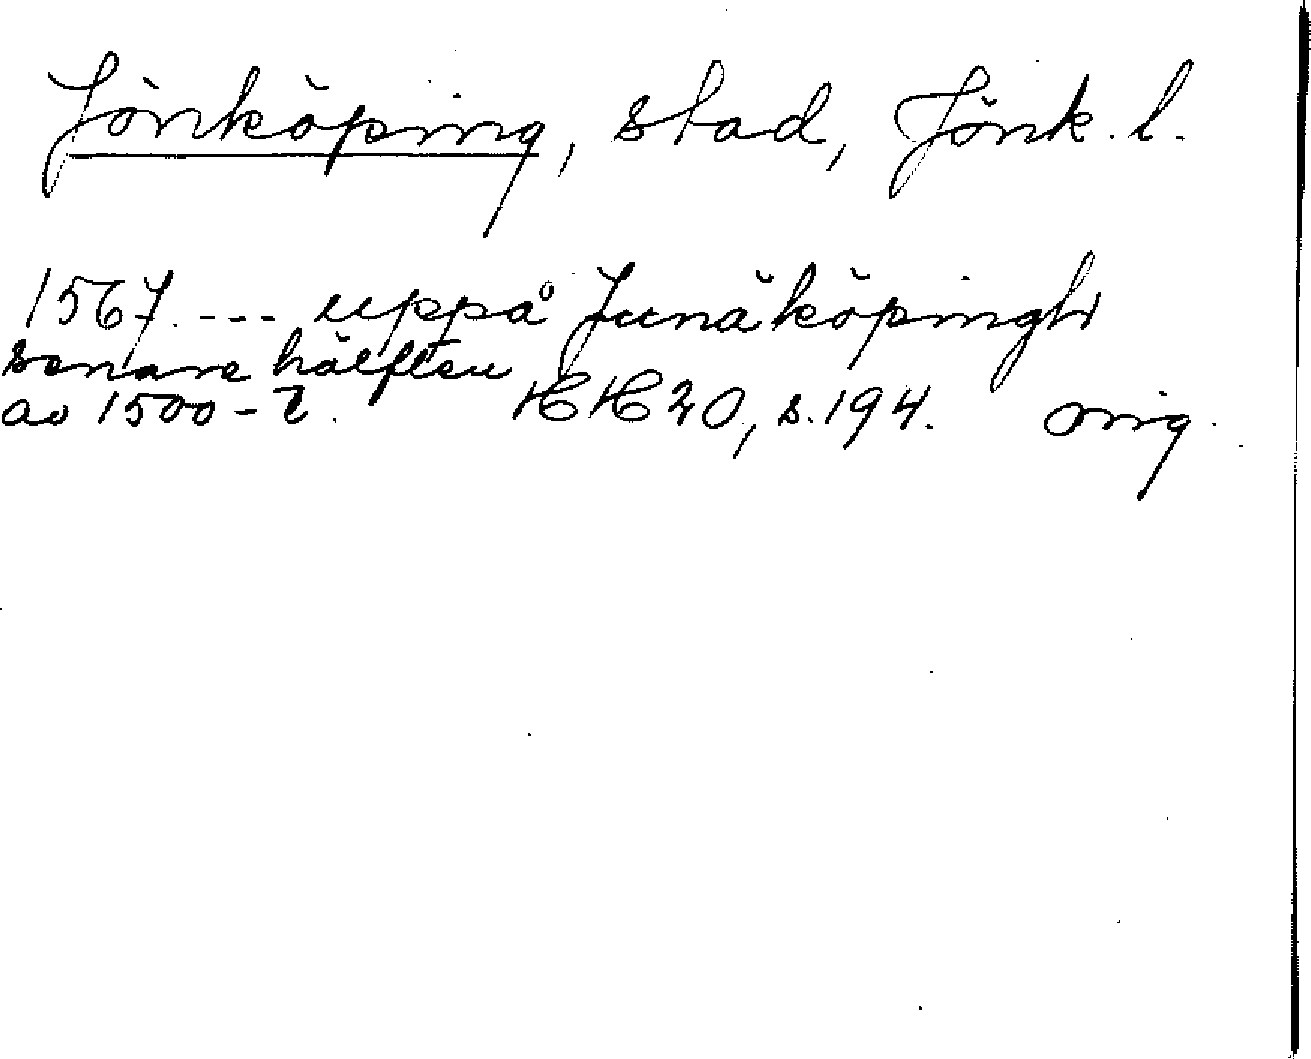 Jönköping, stad, Jönk. l.
1567. --- uppå Junäköpingh
senare hälften
av 1500-t. HH 20, s. 194. orig.